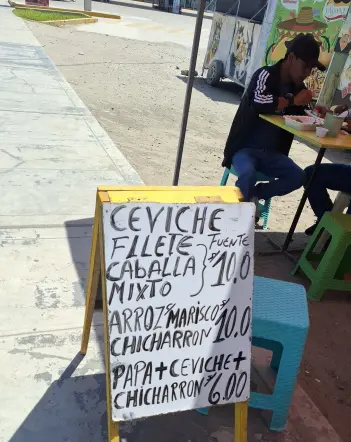 CEVICHE
FILETE } FUENTE
CABALLA } S/10.0
MIXTO
ARROZ S/ MARISCO S/
CHICHARRON 10.0
PAPA+CEVICHE+
CHICHARRON S/6.00